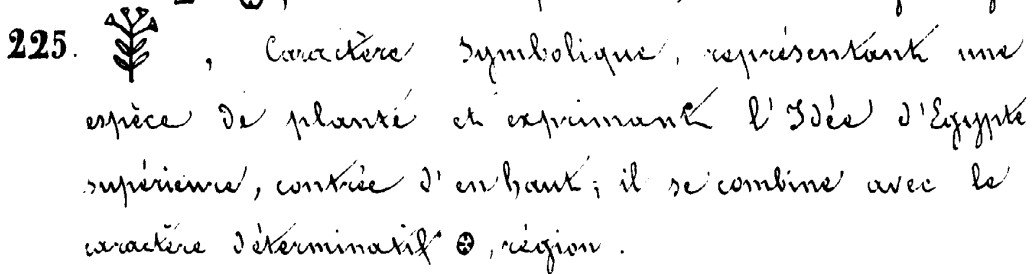 225. 𓇗, Caractère Symbolique, représentant une
espèce de planté et exprimant l'Idée d'Egypte
supérieure, contrée d'en haut; il se combine avec le
caractère déterminatif 𓊖, région.